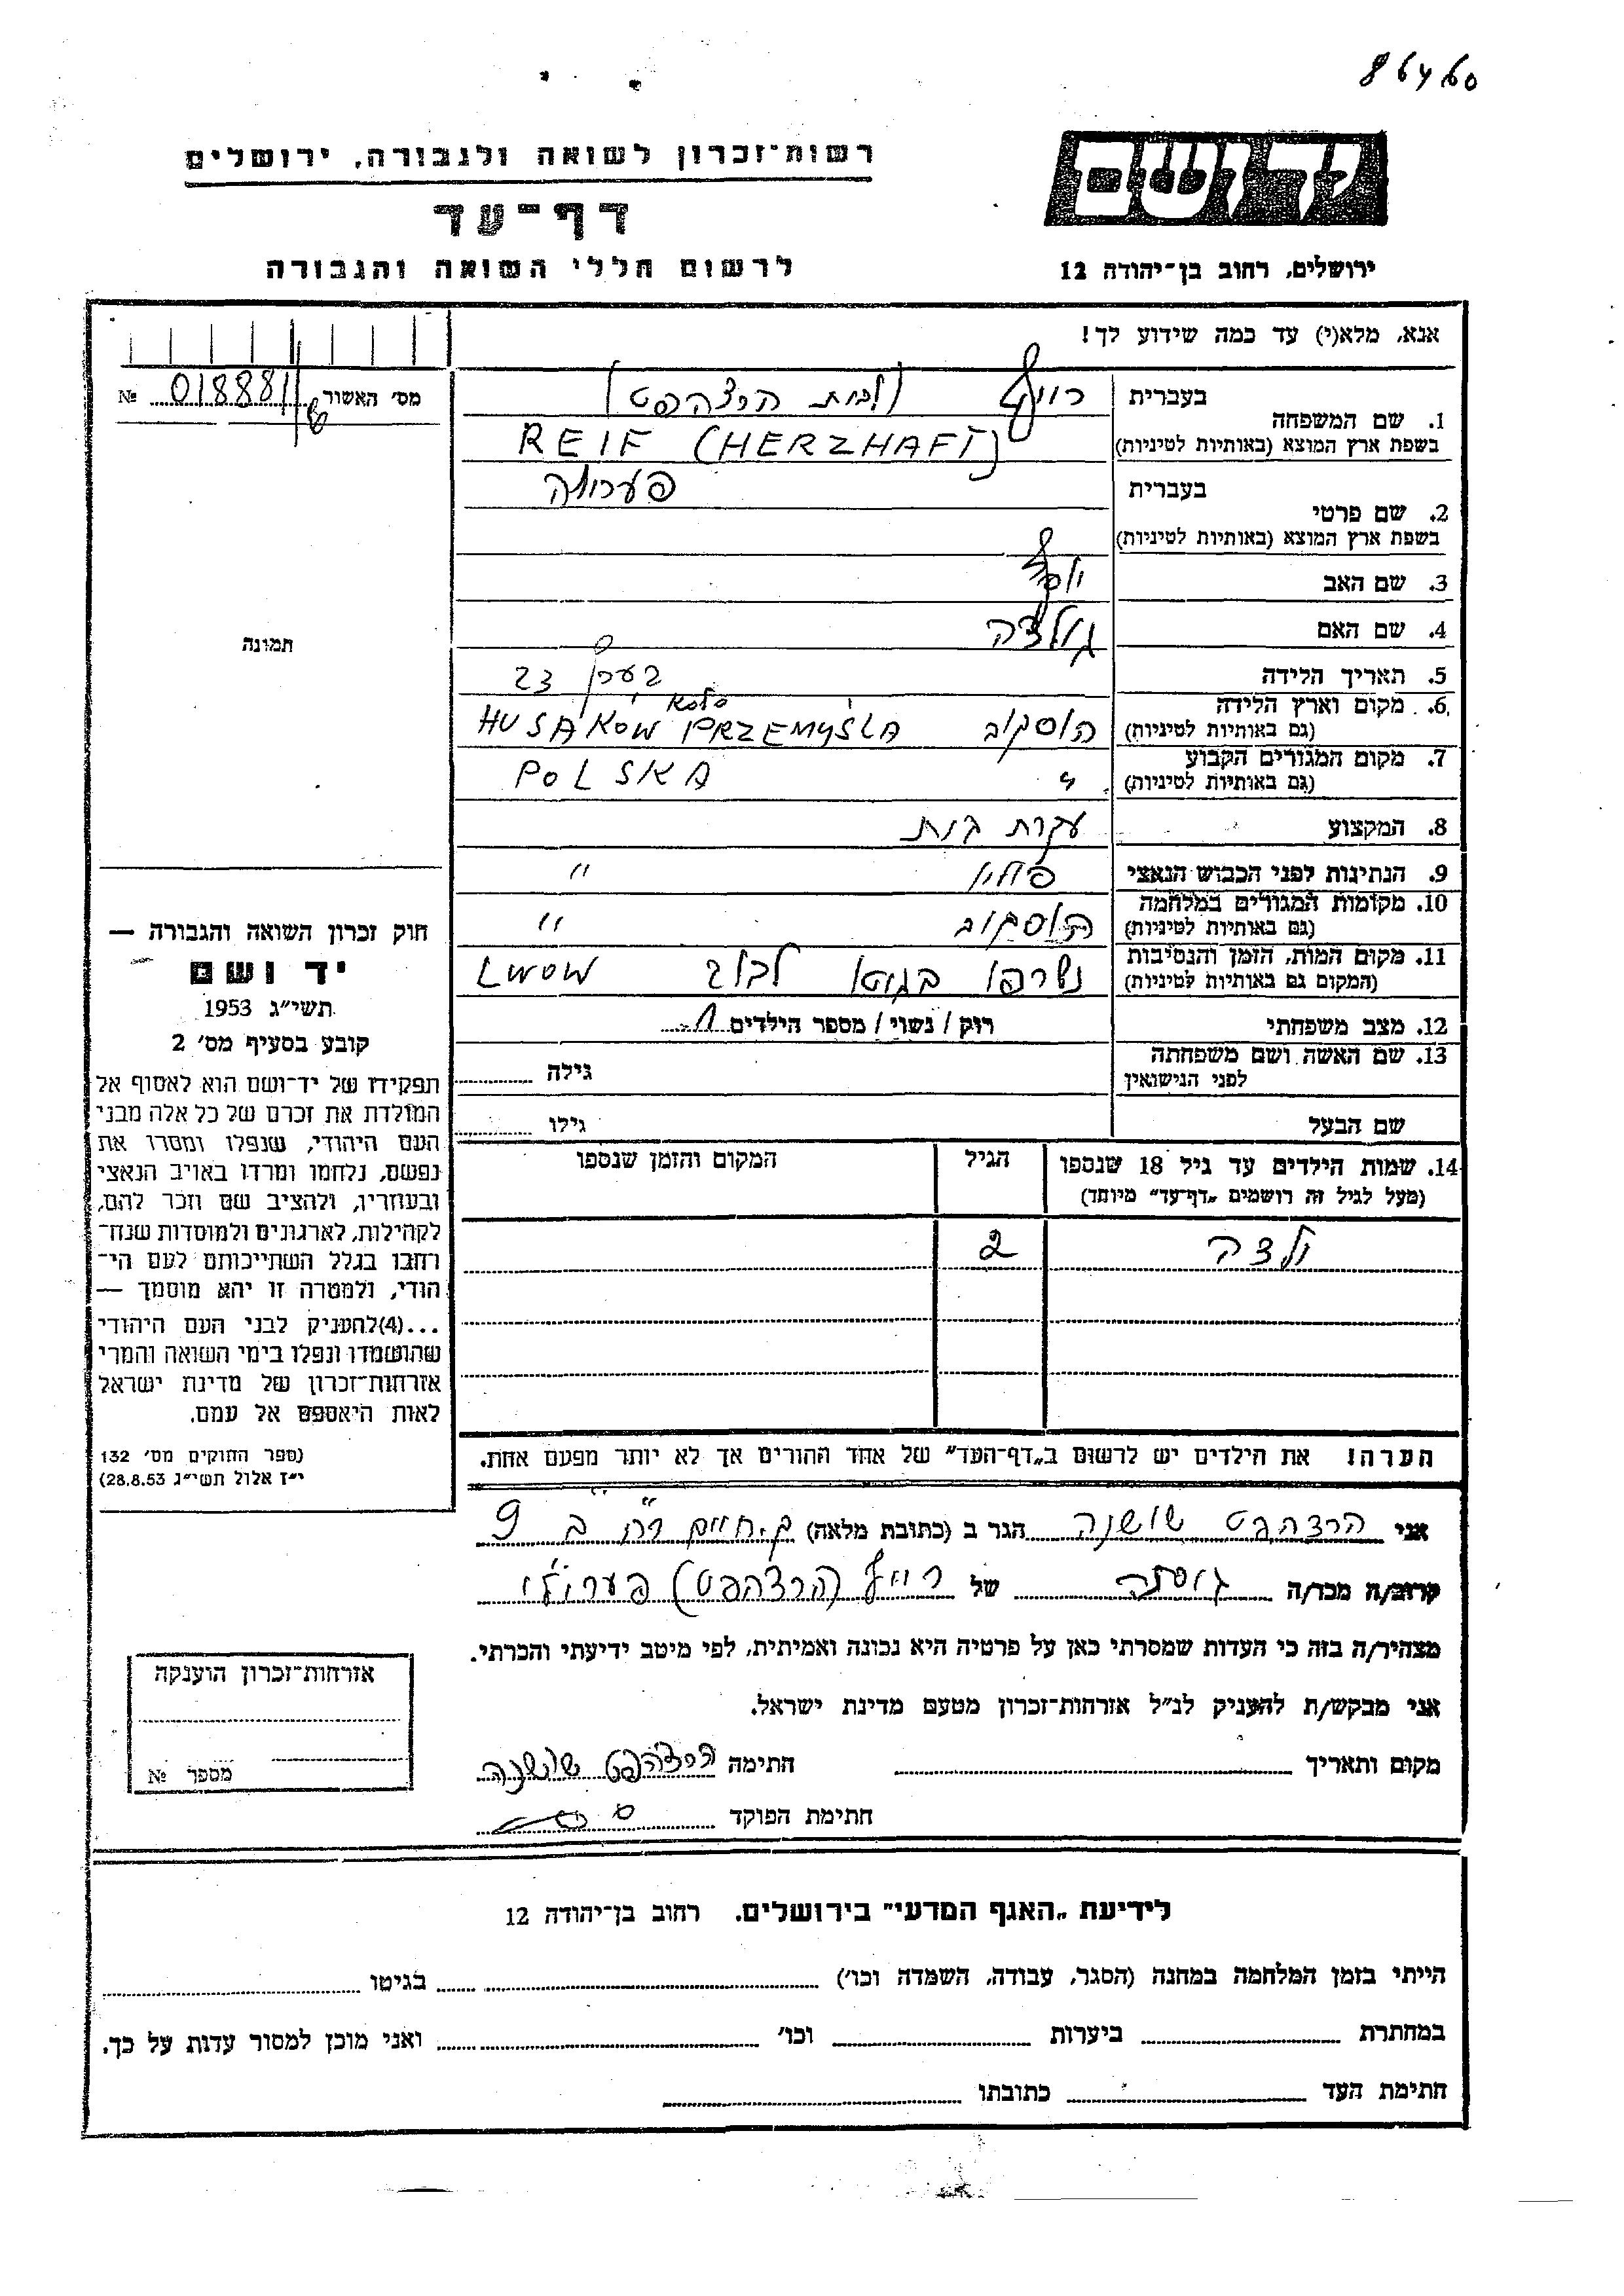 86460
יד ושם
רשות־זכרון לשואה ולגבורה, ירושלים
דף־עד
לרשום חללי השואה והגבורה
ירושלים, רחוב בן־יהודה 12
אנא, מלא(י) עד כמה שידוע לך!
מס׳ האשור 018881 №
1. שם המשפחה
בעברית רייף (לבית הרצהפט)
בשפת ארץ המוצא (באותיות לטיניות) REIF (HERZHAFT)
2. שם פרטי
בעברית
בשפת ארץ המוצא (באותיות לטיניות)
3. שם האב יוסף
4. שם האם גולדה
תמונה
5. תאריך הלידה בערך 23
6. מקום וארץ הלידה
(גם באותיות לטיניות) הוסקוב HUSAKOW PRZEMYŚLA
7. מקום המגורים הקבוע
(גם באותיות לטיניות) " POLSKA
8. המקצוע עקרת בית
9. הנתינות לפני הכבוש הנאצי פולין "
10. מקומות המגורים במלחמה
(גם באותיות לטיניות) הוסקוב "
11. מקום המות, הזמן והנסיבות
(המקום גם באותיות לטיניות) נשרפו בגיטו לבוב LWOW
12. מצב משפחתי רוק / נשוי / מספר הילדים 1
13. שם האשה ושם משפחתה
לפני הנישואין גילה
שם הבעל גילו
14. שמות הילדים עד גיל 18 שנספו
(מעל לגיל זה רושמים „דף־עד״ מיוחד)
הגיל
המקום והזמן שנספו
ילדה 2
הערה! את הילדים יש לרשום ב„דף־העד״ של אחד ההורים אך לא יותר מפעם אחת.
חוק זכרון השואה והגבורה —
יד ושם
תשי״ג 1953
קובע בסעיף מס׳ 2
תפקידו של יד־ושם הוא לאסוף אל
המולדת את זכרם של כל אלה מבני
העם היהודי, שנפלו ומסרו את
נפשם, נלחמו ומרדו באויב הנאצי
ובעוזריו, ולהציב שם וזכר להם,
לקהילות, לארגונים ולמוסדות שנח־
רבו בגלל השתייכותם לעם הי־
הודי, ולמטרה זו יהא מוסמך —
...(4) להעניק לבני העם היהודי
שהושמדו ונפלו בימי השואה והמרי
אזרחות־זכרון של מדינת ישראל
לאות היאספם אל עמם.
(ספר החוקים מס׳ 132
י״ז אלול תשי״ג 28.8.53)
אני הרצהפט שושנה הגר ב (כתובת מלאה) ק.חיים רח ב 9
קרוב/ה מכר/ה גיסתה של רייף (הרצהפט)
מצהיר/ה בזה כי העדות שמסרתי כאן על פרטיה היא נכונה ואמיתית, לפי מיטב ידיעתי והכרתי.
אני מבקש/ת להעניק לנ״ל אזרחות־זכרון מטעם מדינת ישראל.
מקום ותאריך חתימה הרצהפט שושנה
חתימת הפוקד
אזרחות־זכרון הוענקה
מספר №
לידיעת „האגף המדעי״ בירושלים. רחוב בן־יהודה 12
הייתי בזמן המלחמה במחנה (הסגר, עבודה, השמדה וכו׳) בגיטו
במחתרת ביערות וכו׳ ואני מוכן למסור עדות על כך.
חתימת העד כתובתו